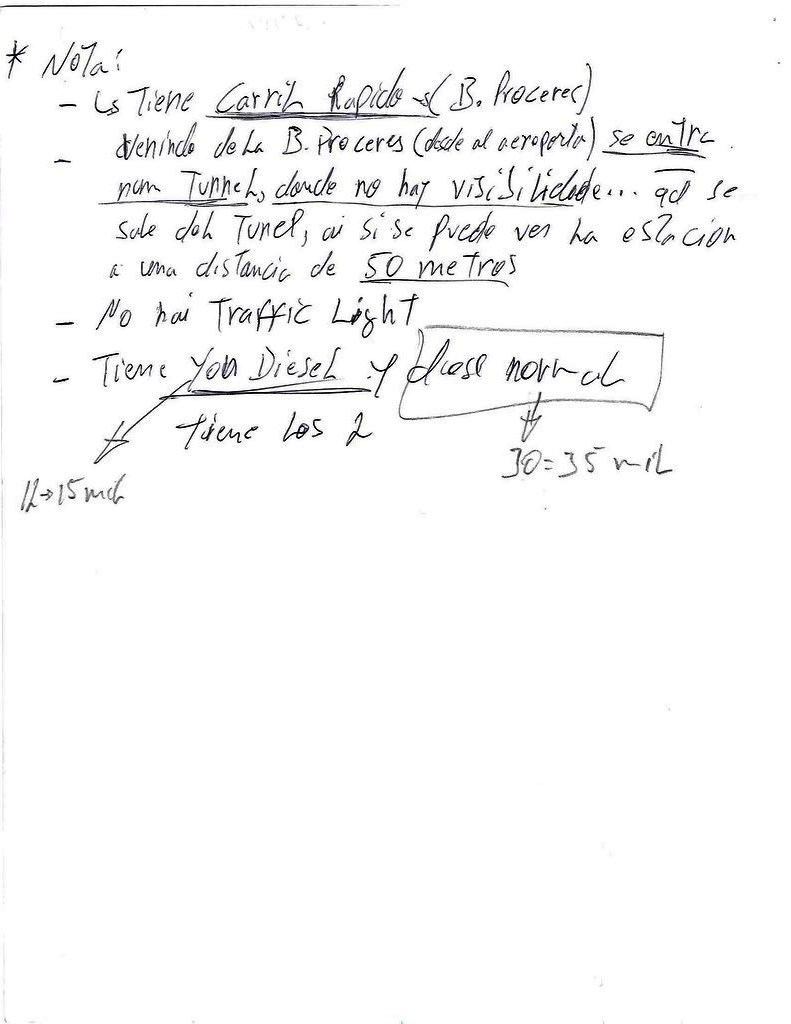 * Nota:
- Ls Tiene Carril Rapido → (B. Proceres)
- Venindo de La B. Proceres (desde al aeroporto) se entra
num Tunnel, donde no hay visibilidade... qd se
sale del Tunel, ai si se puede ver La estacion
a una distancia de 50 metros
- No hai Traffic Light
- Tiene You Diesel y diesel normal
tiene Los 2
30=35 mil
12→15 mil